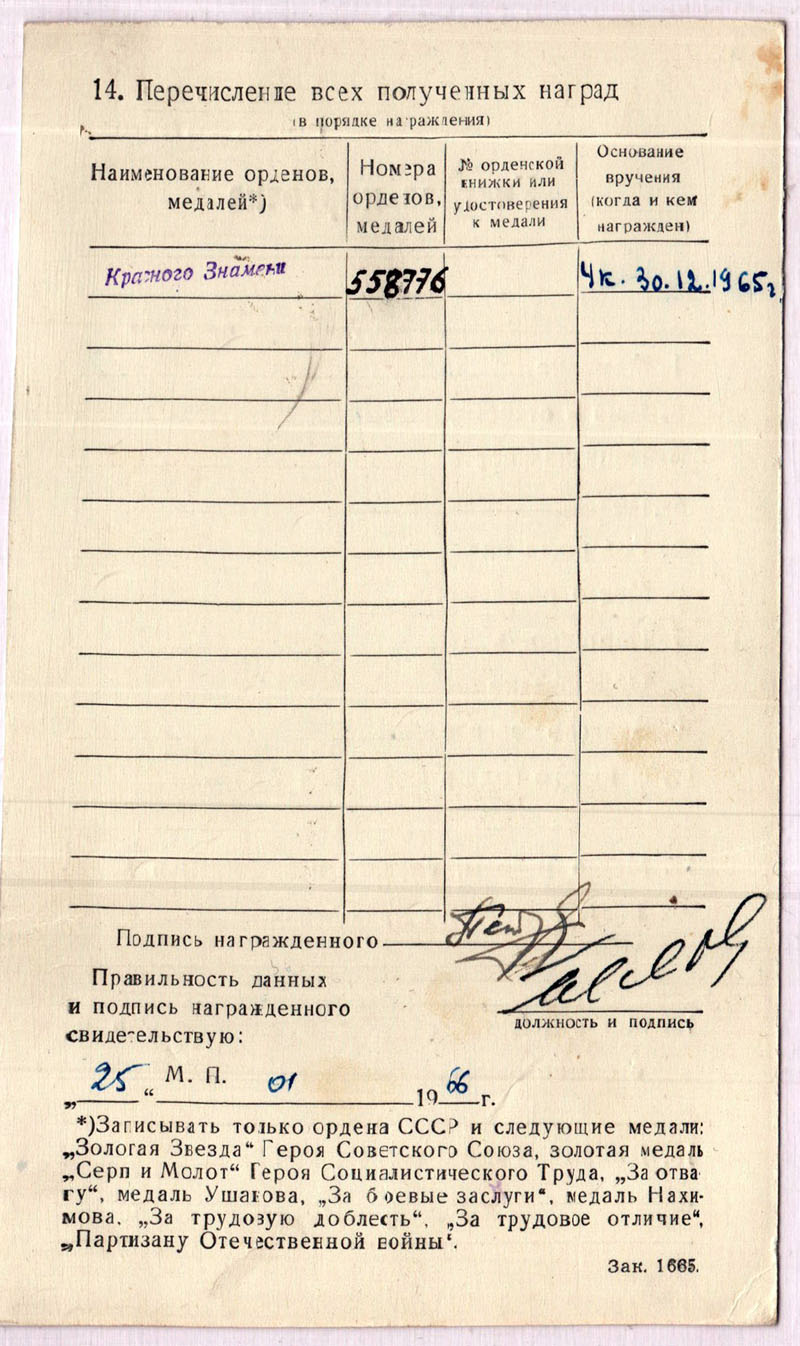 14. Перечисление всех полученных наград
(в порядке награждения)
Наименование орденов, медалей*)
Номера орденов, медалей
№ орденской книжки или удостоверения к медали
Основание вручения (когда и кем награжден)
Красного Знамени 558776 Ук. 30.12.1965г
Подпись награжденного
Правильность данных
и подпись награжденного
свидетельствую:
должность и подпись
„25“ М. П. 01 1966 г.
*)Записывать только ордена СССР и следующие медали:
„Золотая Звезда“ Героя Советского Союза, золотая медаль
„Серп и Молот“ Героя Социалистического Труда, „За отва
гу“, медаль Ушакова, „За боевые заслуги“, медаль Нахи-
мова, „За трудовую доблесть“, „За трудовое отличие“,
„Партизану Отечественной войны“.
Зак. 1665.